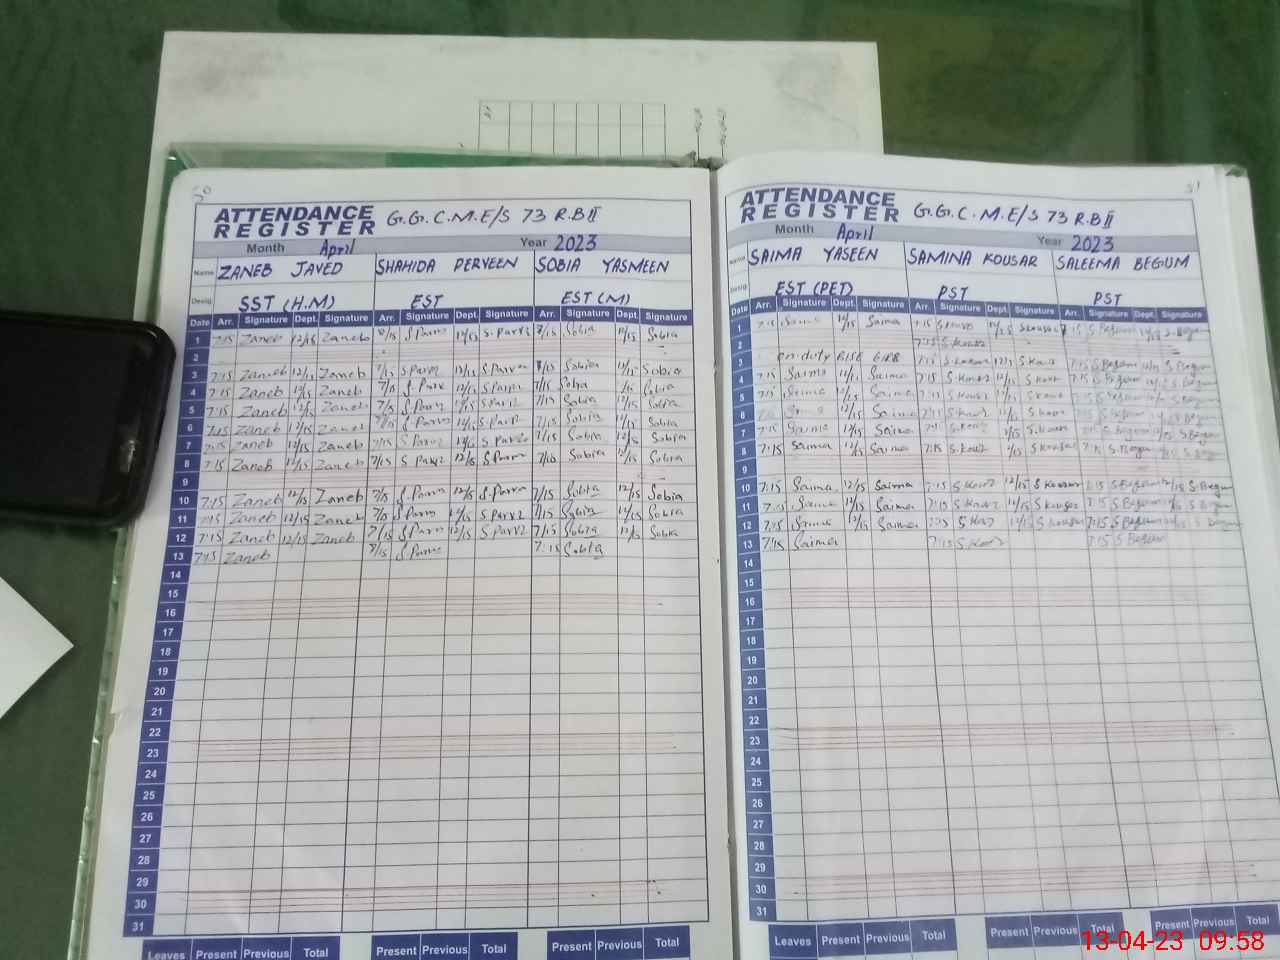 50
ATTENDANCE
REGISTER G.G.C.M.E/S 73 R.B II
Month April Year 2023
Name ZANEB JAVED SHAHIDA PERVEEN SOBIA YASMEEN
Desig. SST (H.M) EST EST (M)
Date Arr. Signature Dept. Signature Arr. Signature Dept. Signature Arr. Signature Dept. Signature
1 7:15 Zaneb 12/15 Zaneb 7/15 12/15 7/15 Sobia 12/15 Sobia
2
3 7:15 Zaneb Zaneb Sobia 12/15 Sobia
4 7:15 Zaneb 12/15 Zaneb 7/15 12/15 7/15 Sobia Sobia
5 7:15 Zaneb 12/15 Zaneb 7/15 12/15 7/15 Sobia 12/15 Sobia
6 7:15 Zaneb 12/15 Zaneb 7/15 Sobia 12/15 Sobia
7 7:15 Zaneb 12/15 Zaneb 7/15 7/15 Sobia Sobia
8 7:15 Zaneb 12/15 Zaneb 7/15 12/15 7/15 Sobia 12/15 Sobia
9
10 7:15 Zaneb 12/15 Zaneb 7/15 12/15 7/15 Sobia 12/15 Sobia
11 7:15 Zaneb 12/15 Zaneb 7/15 12/15 7/15 Sobia 12/15 Sobia
12 7:15 Zaneb 12/15 Zaneb 7/15 12/15 7/15 Sobia Sobia
13 7:15 Zaneb 7/15 7:15 Sobia
14
15
16
17
18
19
20
21
22
23
24
25
26
27
28
29
30
31
Leaves Present Previous Total Present Previous Total Present Previous Total
51
ATTENDANCE
REGISTER G.G.C.M.E/S 73 R.B II
Month April Year 2023
Name SAIMA YASEEN SAMINA KOUSAR SALEEMA BEGUM
Desig. EST (PET) PST PST
Date Arr. Signature Dept. Signature Arr. Signature Dept. Signature Arr. Signature Dept. Signature
1 7:15 Saima 12/15 Saima 7:15 12/15 S Kousar 7:15 S Begum S Begum
2 7:15
3 on duty 7:15 S Begum S Begum
4 7:15 Saima 12/15 Saima 7:15 12/15 7:15 S Begum S Begum
5 7:15 Saima 12/15 Saima 7:15 12/15 7:15 S Begum S Begum
6 Saima 12/15 Saima 7:15 12/15 S Begum S Begum
7 7:15 Saima 12/15 Saima 7:15 12/15 7:15 S Begum 12/15 S Begum
8 7:15 Saima 12/15 Saima 7:15 12/15 S Kousar 7:15 S Begum S Begum
9
10 7:15 Saima 12/15 Saima 7:15 12/15 S Kousar 7:15 S Begum 12/15 S Begum
11 7:15 Saima 12/15 Saima 7:15 12/15 S Kousar 7:15 S Begum S Begum
12 7:15 Saima 12/15 Saima 7:15 12/15 S Kousar 7:15 S Begum S Begum
13 7:15 Saima 7:15 7:15 S Begum
14
15
16
17
18
19
20
21
22
23
24
25
26
27
28
29
30
31
Leaves Present Previous Total Present Previous Total Present Previous Total
13-04-23 09:58